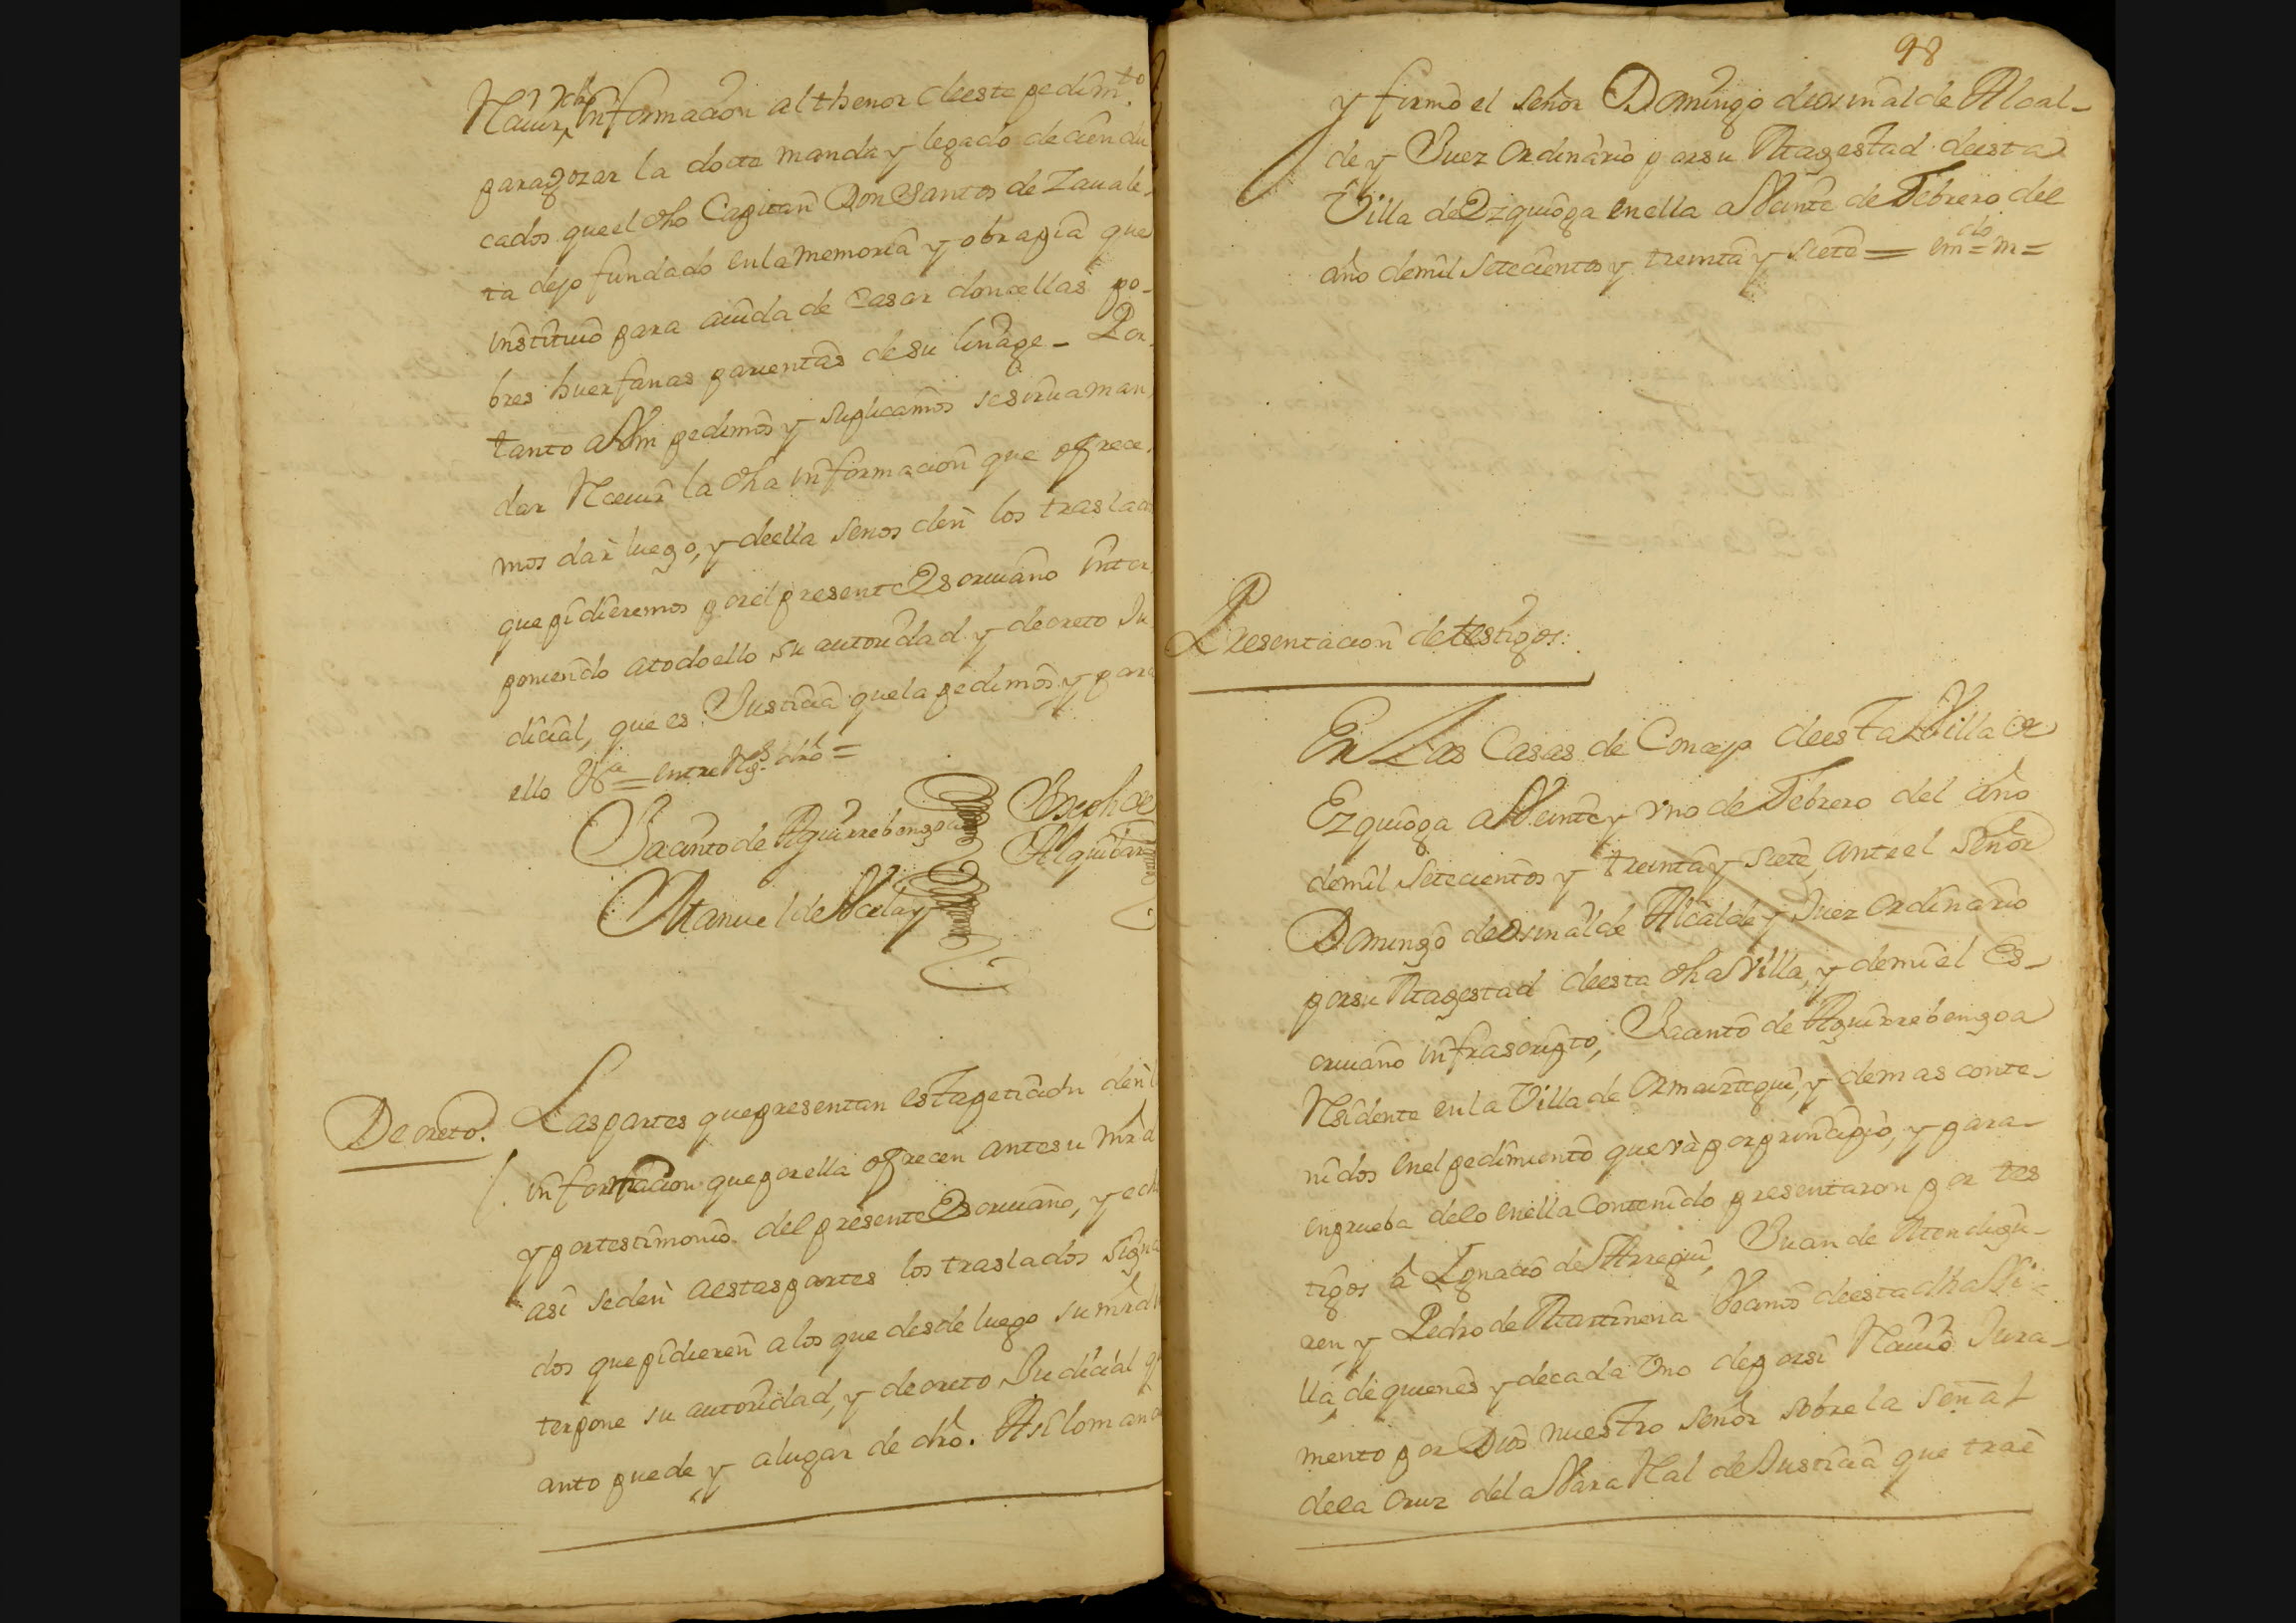 Recivir informacion al thenor de este pedim.to
para gozar la dote manda y legado de cien du
cados que el dho Capitan Don Santos de Zauale-
ta dejo fundado en la memoria y obra pia que
instituio para aiuda de Casar doncellas po-
bres huerfanas parientas de su linage - Por
tanto a Vm pedimos y suplicamos se sirua man
dar Receuir la dha informacion que ofrece-
mos dar luego, y de ella se nos den los traslados
que pidieremos por el presente Escriuano inter
poniendo a todo ello su autoridad y decreto Ju
dicial, que es Justicia que la pedimos, y para
ello V.a = entre Rg.s
Jacinto de Aguirrebengoa
Joseph de
Manuel de Zelaya
Decreto.
Las partes que presentan esta peticion den la
informacion que por ella ofrecen ante su mrd
y por testimonio del presente Escriuano, y echo
asi se den a estas partes los traslados signa
dos que pidieren a los que desde luego su mrd in
terpone su autoridad, y decreto Judicial q
anto puede y a lugar de dro. Asi lo mando
98
y firmo el señor Domingo de Osinalde Alcal-
de y Juez Ordinario por su Magestad de esta
Villa de Ezquioga en ella a Veinte de Febrero del
año de mil Setecientos y treinta y siete = em.do = m =
Presentacion de testigos:
En Las Casas de Concejo de esta Villa de
Ezquioga a Veinte y vno de Febrero del año
de mil Setecientos y treinta y siete, ante el señor
Domingo de Osinalde Alcalde y Juez Ordinario
por su Magestad de esta dha Villa, y de mi el Es-
criuano infrascripto, Jacinto de Aguirrebengoa
Residente en la Villa de Ormaiztegui, y demas conte-
nidos en el pedimiento que và por principio, y para
en prueba de lo en ella Contenido presentaron por tes
tigos à Ignacio de Arregui, Juan de Mendigu-
ren y Pedro de Martinena Vecinos de esta dha Vi-
lla de quienes y de cada Vno de por si Reciuio Jura-
mento por Dios nuestro señor sobre la señal
de la Cruz de la Vara Real de Justicia que trae